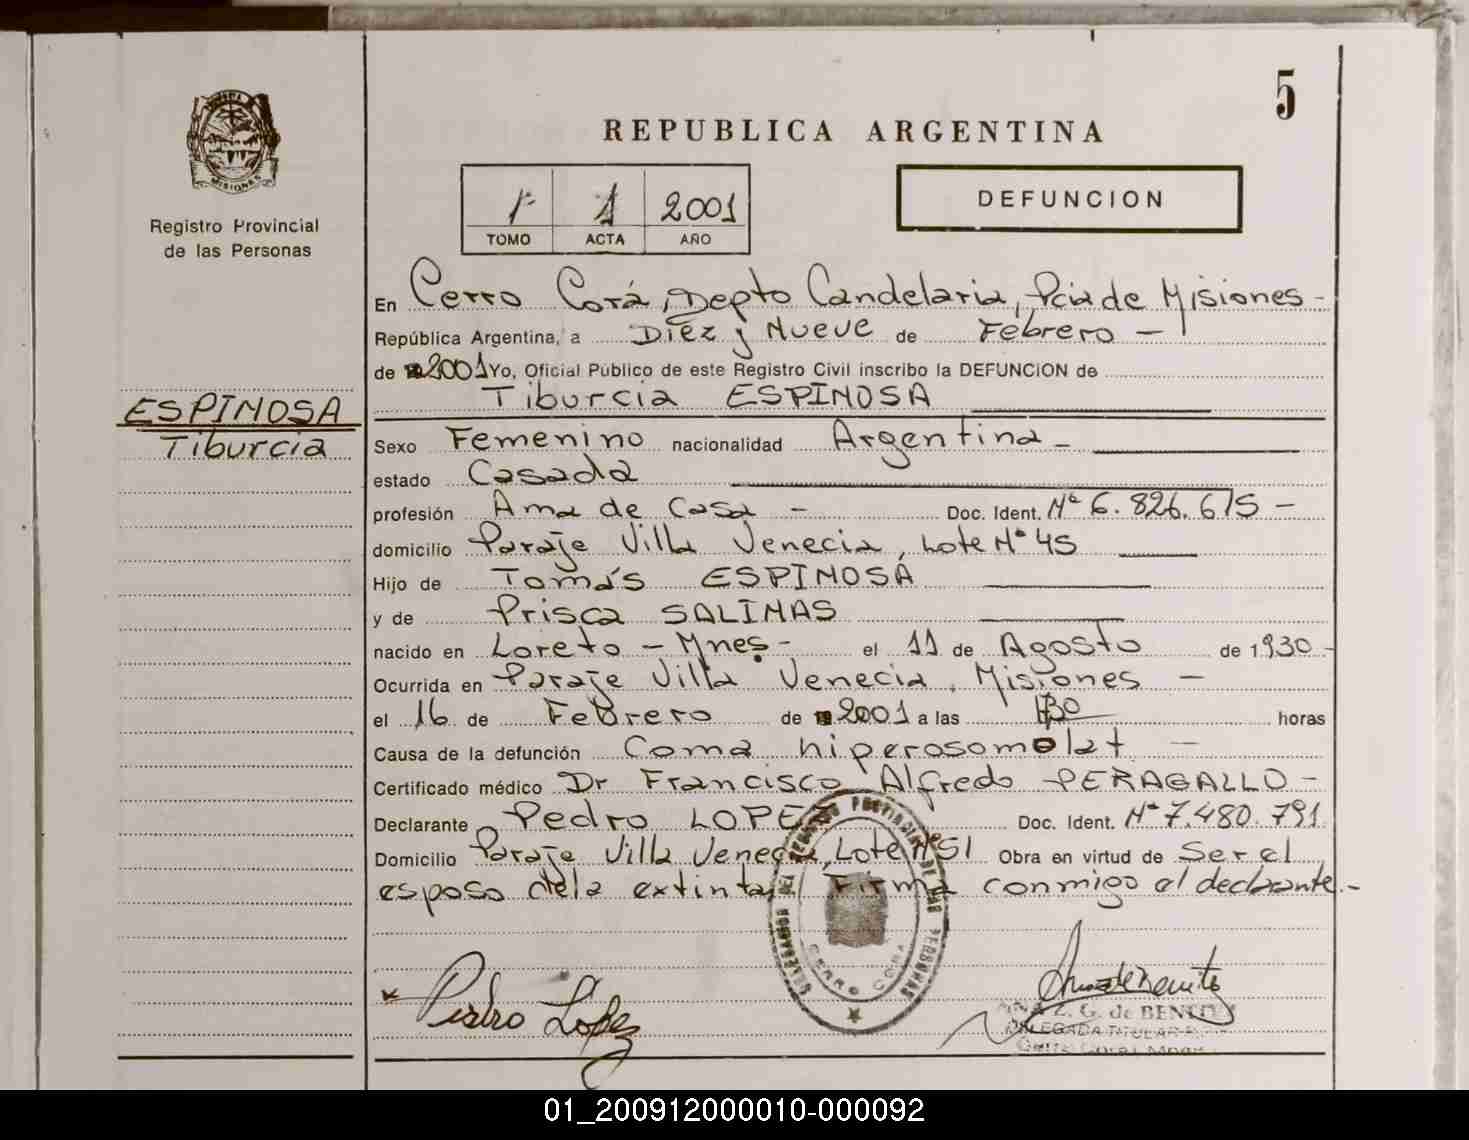 5
REPUBLICA ARGENTINA
MISIONES
Registro Provincial
de las Personas
1º 1 2001
TOMO ACTA AÑO
DEFUNCION
ESPINOSA
Tiburcia
En Cerro Corá, Depto Candelaria, Pcia de Misiones -
República Argentina, a Diez y Nueve de Febrero -
de 2001 Yo, Oficial Público de este Registro Civil inscribo la DEFUNCION de
Tiburcia ESPINOSA
Sexo Femenino nacionalidad Argentina -
estado Casada
profesión Ama de Casa - Doc. Ident. Nº 6.826.615 -
domicilio Paraje Villa Venecia, Lote Nº 45
Hijo de Tomás ESPINOSA
y de Prisca SALINAS
nacido en Loreto - Mnes - el 11 de Agosto de 1930 -
Ocurrida en Paraje Villa Venecia, Misiones -
el 16 de Febrero de 2001 a las horas
Causa de la defunción Coma hiperosomolat -
Certificado médico Dr Francisco Alfredo PERAGALLO -
Declarante Pedro LOPEZ Doc. Ident. Nº 7.480.791
Domicilio Paraje Villa Venecia, Lote Nº 51 Obra en virtud de Ser el
esposo dela extinta Firma conmigo el declarante.-
PROVINCIAL DE LAS PERSONAS
CERRO CORA
Pedro López
Z. G. de BENITEZ
DELEGADA TITULAR
Cerro Corá
01_200912000010-000092